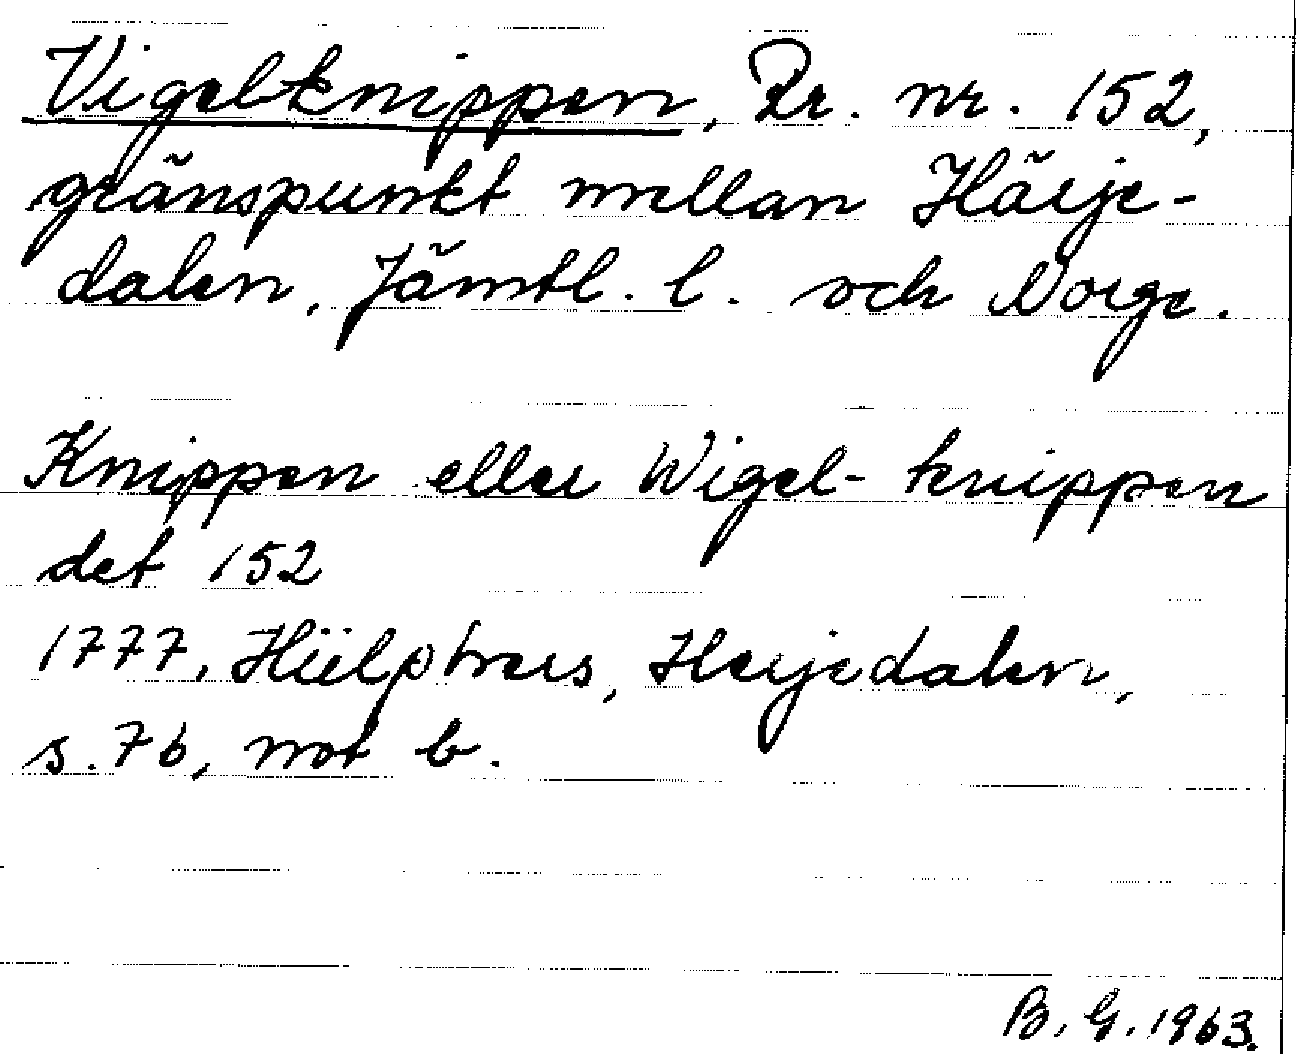 Vigelknippen, Rr. nr. 152,
gränspunkt mellan Härje-
dalen, Jämtl. l. och Norge.
Knippen eller Wigel- knippen
det 152
1777, Hülphers, Herjedalen,
s. 76, not b.
B. G. 1963.